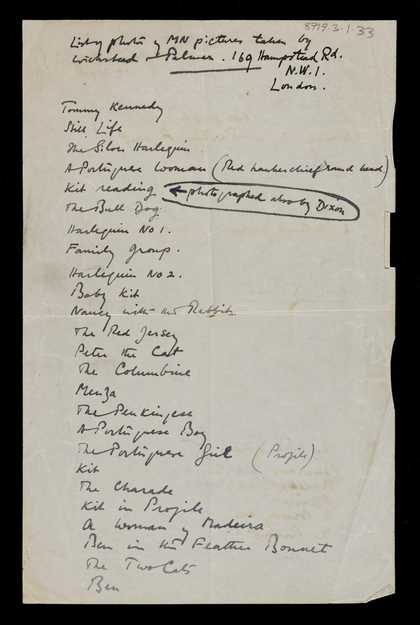 8919-3-1-33
List of photos of MN pictures taken by
& Palmer. 169 Hampstead Rd.
N.W.1.
London.
Tommy Kennedy
Still Life
The Silver Harlequin
A Portuguese Woman (Red hankerchief round head)
Kit reading ← photographed also by Dixon
The Bull Dog
Harlequin No 1.
Family Group.
Harlequin No 2.
Baby Kit
Nancy with the Rabbit
The Red Jersey
Peter the Cat
The Columbine
The Penkingese
A Portuguese Boy
The Portuguese Girl (Profile)
Kit
The Charade
Kit in Profile
A Woman of Madeira
Ben in the Feather Bonnet
The Two Cats
Ben